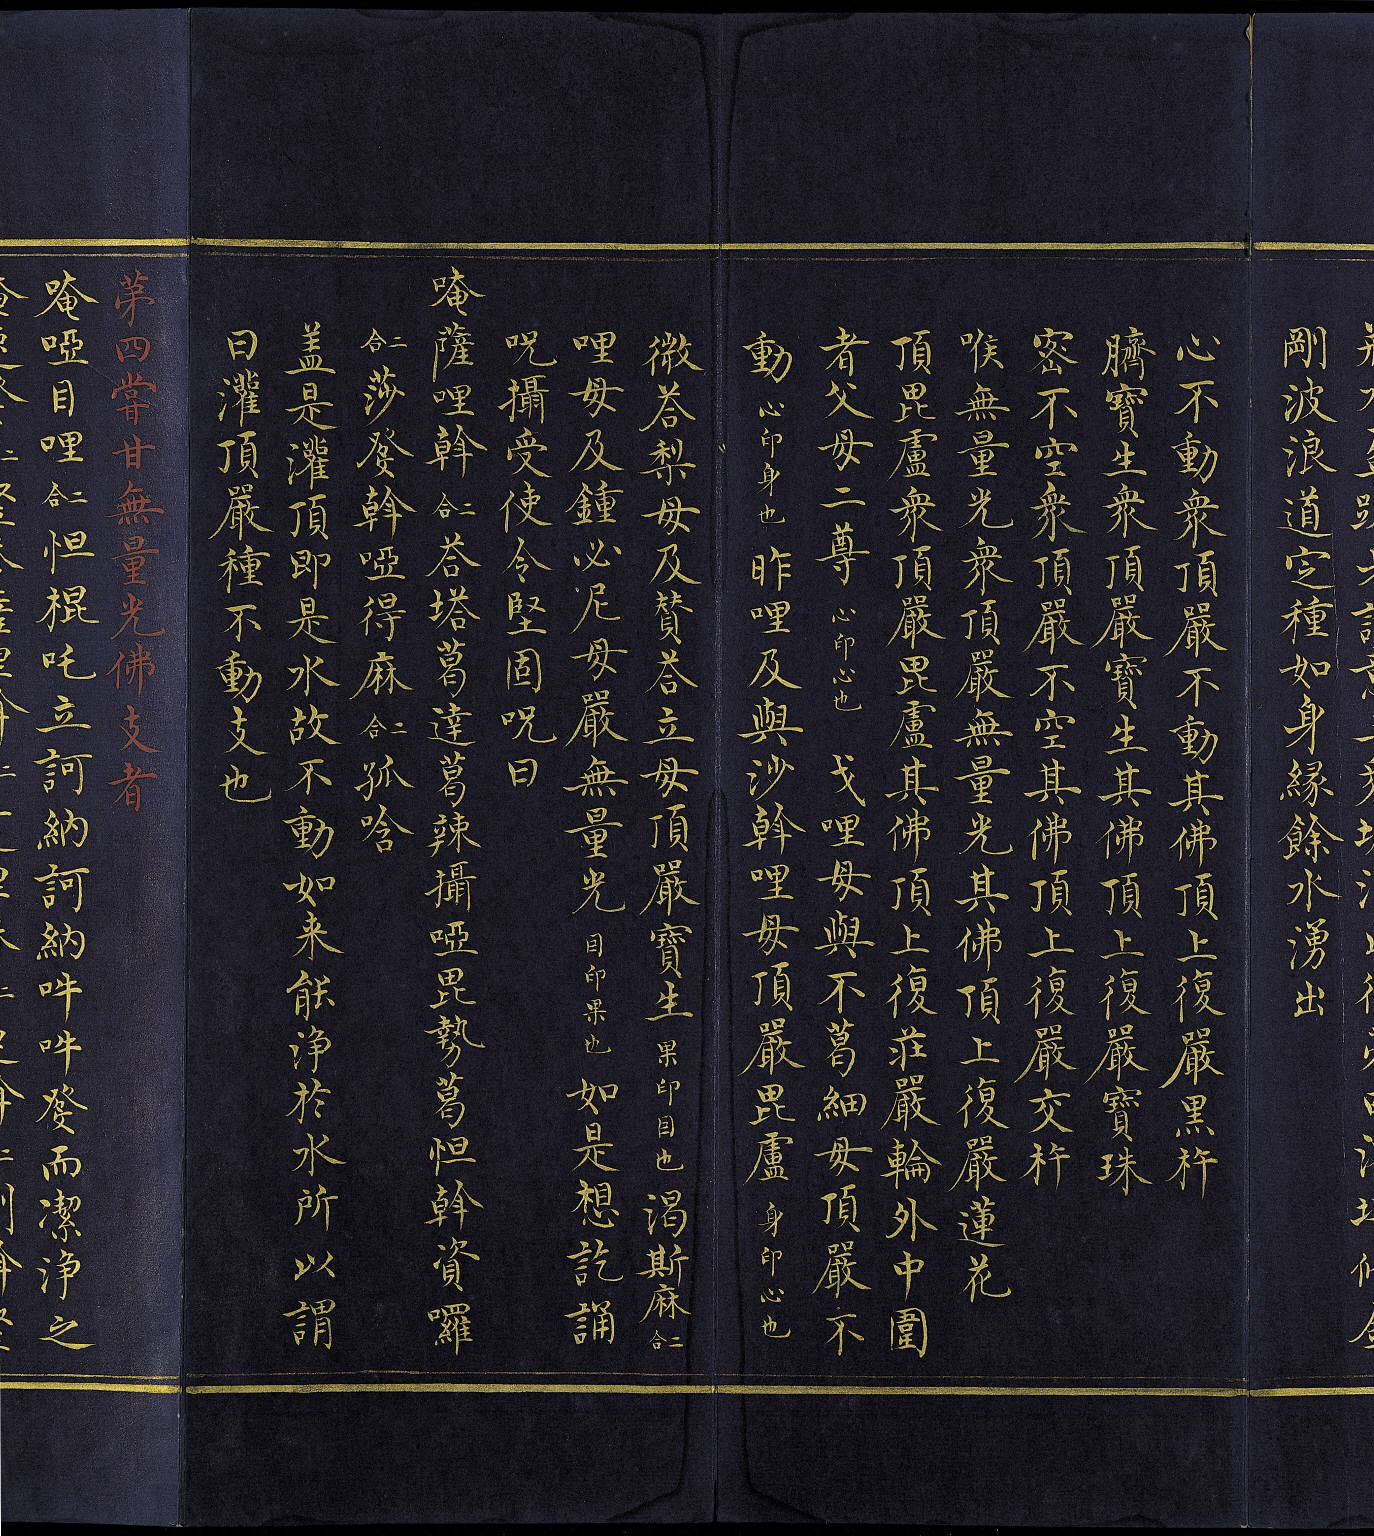 剛波浪道定種如身縁餘水湧出
心不動衆頂嚴不動其佛頂上復嚴黑杵
臍寶生衆頂嚴寶生其佛頂上復嚴寶珠
密不空衆頂嚴不空其佛頂上復嚴交杵
喉無量光衆頂嚴無量光其佛頂上復嚴蓮花
頂毘盧衆頂嚴毘盧其佛頂上復莊嚴輪外中圍
者父母二尊心印心也戈哩母與不葛細母頂嚴不
動心印身也昨哩及與沙斡哩母頂嚴毘盧身印心也
微荅梨母及賛荅立母頂嚴寶生果印目也渴斯麻二合
哩母及鍾必尼母嚴無量光目印果也如是想訖誦
呪攝受使令堅固呪曰
唵薩哩斡二合荅塔葛達葛辣攝啞毘勢葛怛斡資囉
二合莎發斡啞得麻二合孤唅
盖是灌頂即是水故不動如来能浄於水所以謂
曰灌頂嚴種不動支也
苐四甞甘無量光佛支者
唵啞目哩二合怛棍吒立訶納訶納吽吽發而潔浄之